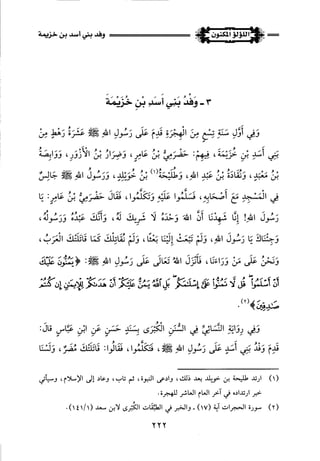 اللؤلؤ المكنون
وفد بني أسد بن خزيمة
٣ - وَفْدُ بَنِي أَسَدِ بْنِ خُزَيْمَةَ
وَفِي أَوَّلِ سَنَةِ تِسْعٍ مِنَ الْهِجْرَةِ قَدِمَ عَلَى رَسُولِ اللهِ ﷺ عَشَرَةُ رَهْطٍ مِنْ
بَنِي أَسَدِ بْنِ خُزَيْمَةَ، فِيهِمْ: حَضْرَمِيُّ بْنُ عَامِرٍ، وَضِرَارُ بْنُ الْأَزْوَرِ، وَوَابِصَةُ
بْنُ مَعْبَدٍ، وَنُقَادَةُ بْنُ عَبْدِ اللهِ، وَطُلَيْحَةُ(١) بْنُ خُوَيْلِدٍ، وَرَسُولُ اللهِ ﷺ جَالِسٌ
فِي الْمَسْجِدِ مَعَ أَصْحَابِهِ، فَسَلَّمُوا عَلَيْهِ وَتَكَلَّمُوا، فَقَالَ حَضْرَمِيُّ بْنُ عَامِرٍ: يَا
رَسُولَ اللهِ! إِنَّا شَهِدْنَا أَنَّ اللهَ وَحْدَهُ لَا شَرِيكَ لَهُ، وَأَنَّكَ عَبْدُهُ وَرَسُولُهُ،
وَجِئْنَاكَ يَا رَسُولَ اللهِ، وَلَمْ تَبْعَثْ إِلَيْنَا بَعْثًا، وَلَمْ نُقَاتِلْكَ كَمَا قَاتَلَتْكَ الْعَرَبُ،
وَنَحْنُ عَلَى مَنْ وَرَاءَنَا، فَأَنْزَلَ اللهُ تَعَالَى عَلَى رَسُولِ اللهِ ﷺ: ﴿يَمُنُّونَ عَلَيْكَ
أَنْ أَسْلَمُوا قُل لَّا تَمُنُّوا عَلَىَّ إِسْلَامَكُم بَلِ اللَّهُ يَمُنُّ عَلَيْكُمْ أَنْ هَدَاكُمْ لِلْإِيمَانِ إِن كُنتُمْ
صَادِقِينَ﴾(٢).
وَفِي رِوَايَةِ النَّسَائِيِّ فِي السُّنَنِ الْكُبْرَى بِسَنَدٍ حَسَنٍ عَنِ ابْنِ عَبَّاسٍ قَالَ:
قَدِمَ وَفْدُ بَنِي أَسَدٍ عَلَى رَسُولِ اللهِ ﷺ، فَتَكَلَّمُوا، فَقَالُوا: قَاتَلَتْكَ مُضَرُ، وَلَسْنَا
(١) ارتد طليحة بن خويلد بعد ذلك، وادعى النبوة، ثم تاب، وعاد إلى الإسلام، وسيأتي
خبر ارتداده في آخر العام العاشر للهجرة.
(٢) سورة الحجرات آية (١٧) - والخبر في الطَّبَقَات الكُبْرَى لابن سعد (١٤١/١).
٢٢٢